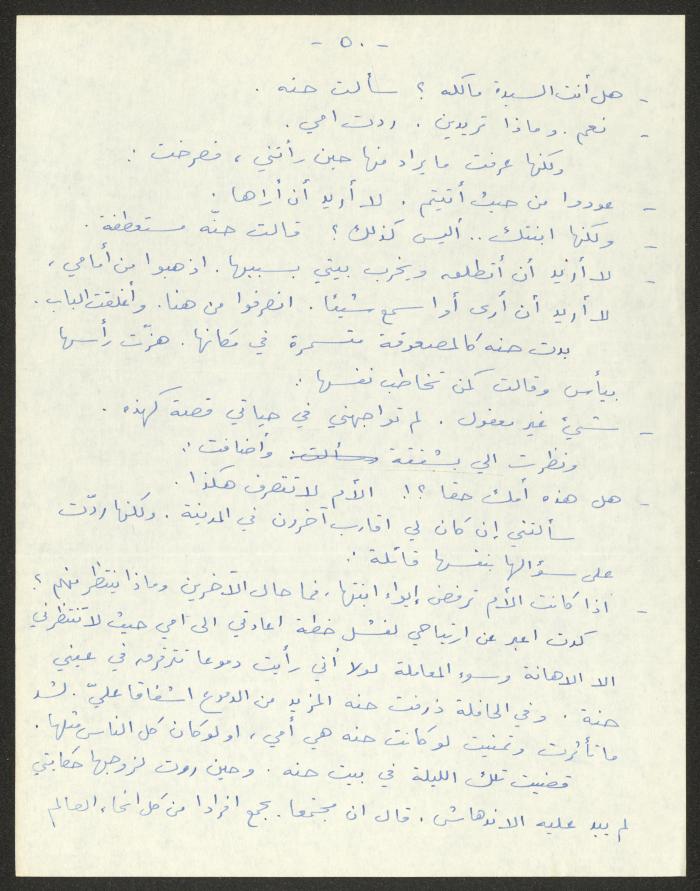 - ٥٠ -
- هل أنت السيدة مالكه ؟ سألت حنه .
- نعم . وماذا تريدين . ردت امي .
ولكنها عرفت ما يراد منها حين رأتني ، فصرخت :
- عودوا من حيث أتيتم . لا أريد أن أراها .
- ولكنها ابنتك .. أليس كذلك ؟ قالت حنّه مستعطفة .
- لا أريد أن أتطلعه ويخرب بيتي بسببها . اذهبوا من أمامي ،
لا أريد أن أرى أو اسمع شيئا . انصرفوا من هنا . وأغلقت الباب .
بدت حنه كالمصعوقة متسمرة في مكانها . هزّت رأسها
بيأس وقالت كمن تخاطب نفسها :
- شيئ غير معقول . لم تواجهني في حياتي قصة كهذه .
ونظرت الي بشفقة سألت: وأضافت :
- هل هذه أمك حقا ؟! الأم لا تتصرف هكذا .
سألتني إن كان لي اقارب آخرون في المدينة . ولكنها ردّت
على سؤالها بنفسها قائلة :
- اذا كانت الأم ترفض إيواء ابنتها ، فما حال الآخرين وماذا ينتظر منهم ؟
كدت اعبر عن ارتياحي لفشل خطة اعادتي الى امي حيث لا تنتظرني
الا الاهانة وسوء المعاملة لولا أني رأيت دموعا تترقرق في عيني
حنة . وفي الحافلة ذرفت حنه المزيد من الدموع اشفاقا عليّ . لشد
ما تأثرت وتمنيت لو كانت حنه هي أمي ، او لو كان كل الناس مثلها .
قضيت تلك الليلة في بيت حنه . وحين روت لزوجها حكايتي
لم يبد عليه الاندهاش . قال ان مجتمعا يجمع افرادا من كل انحاء العالم